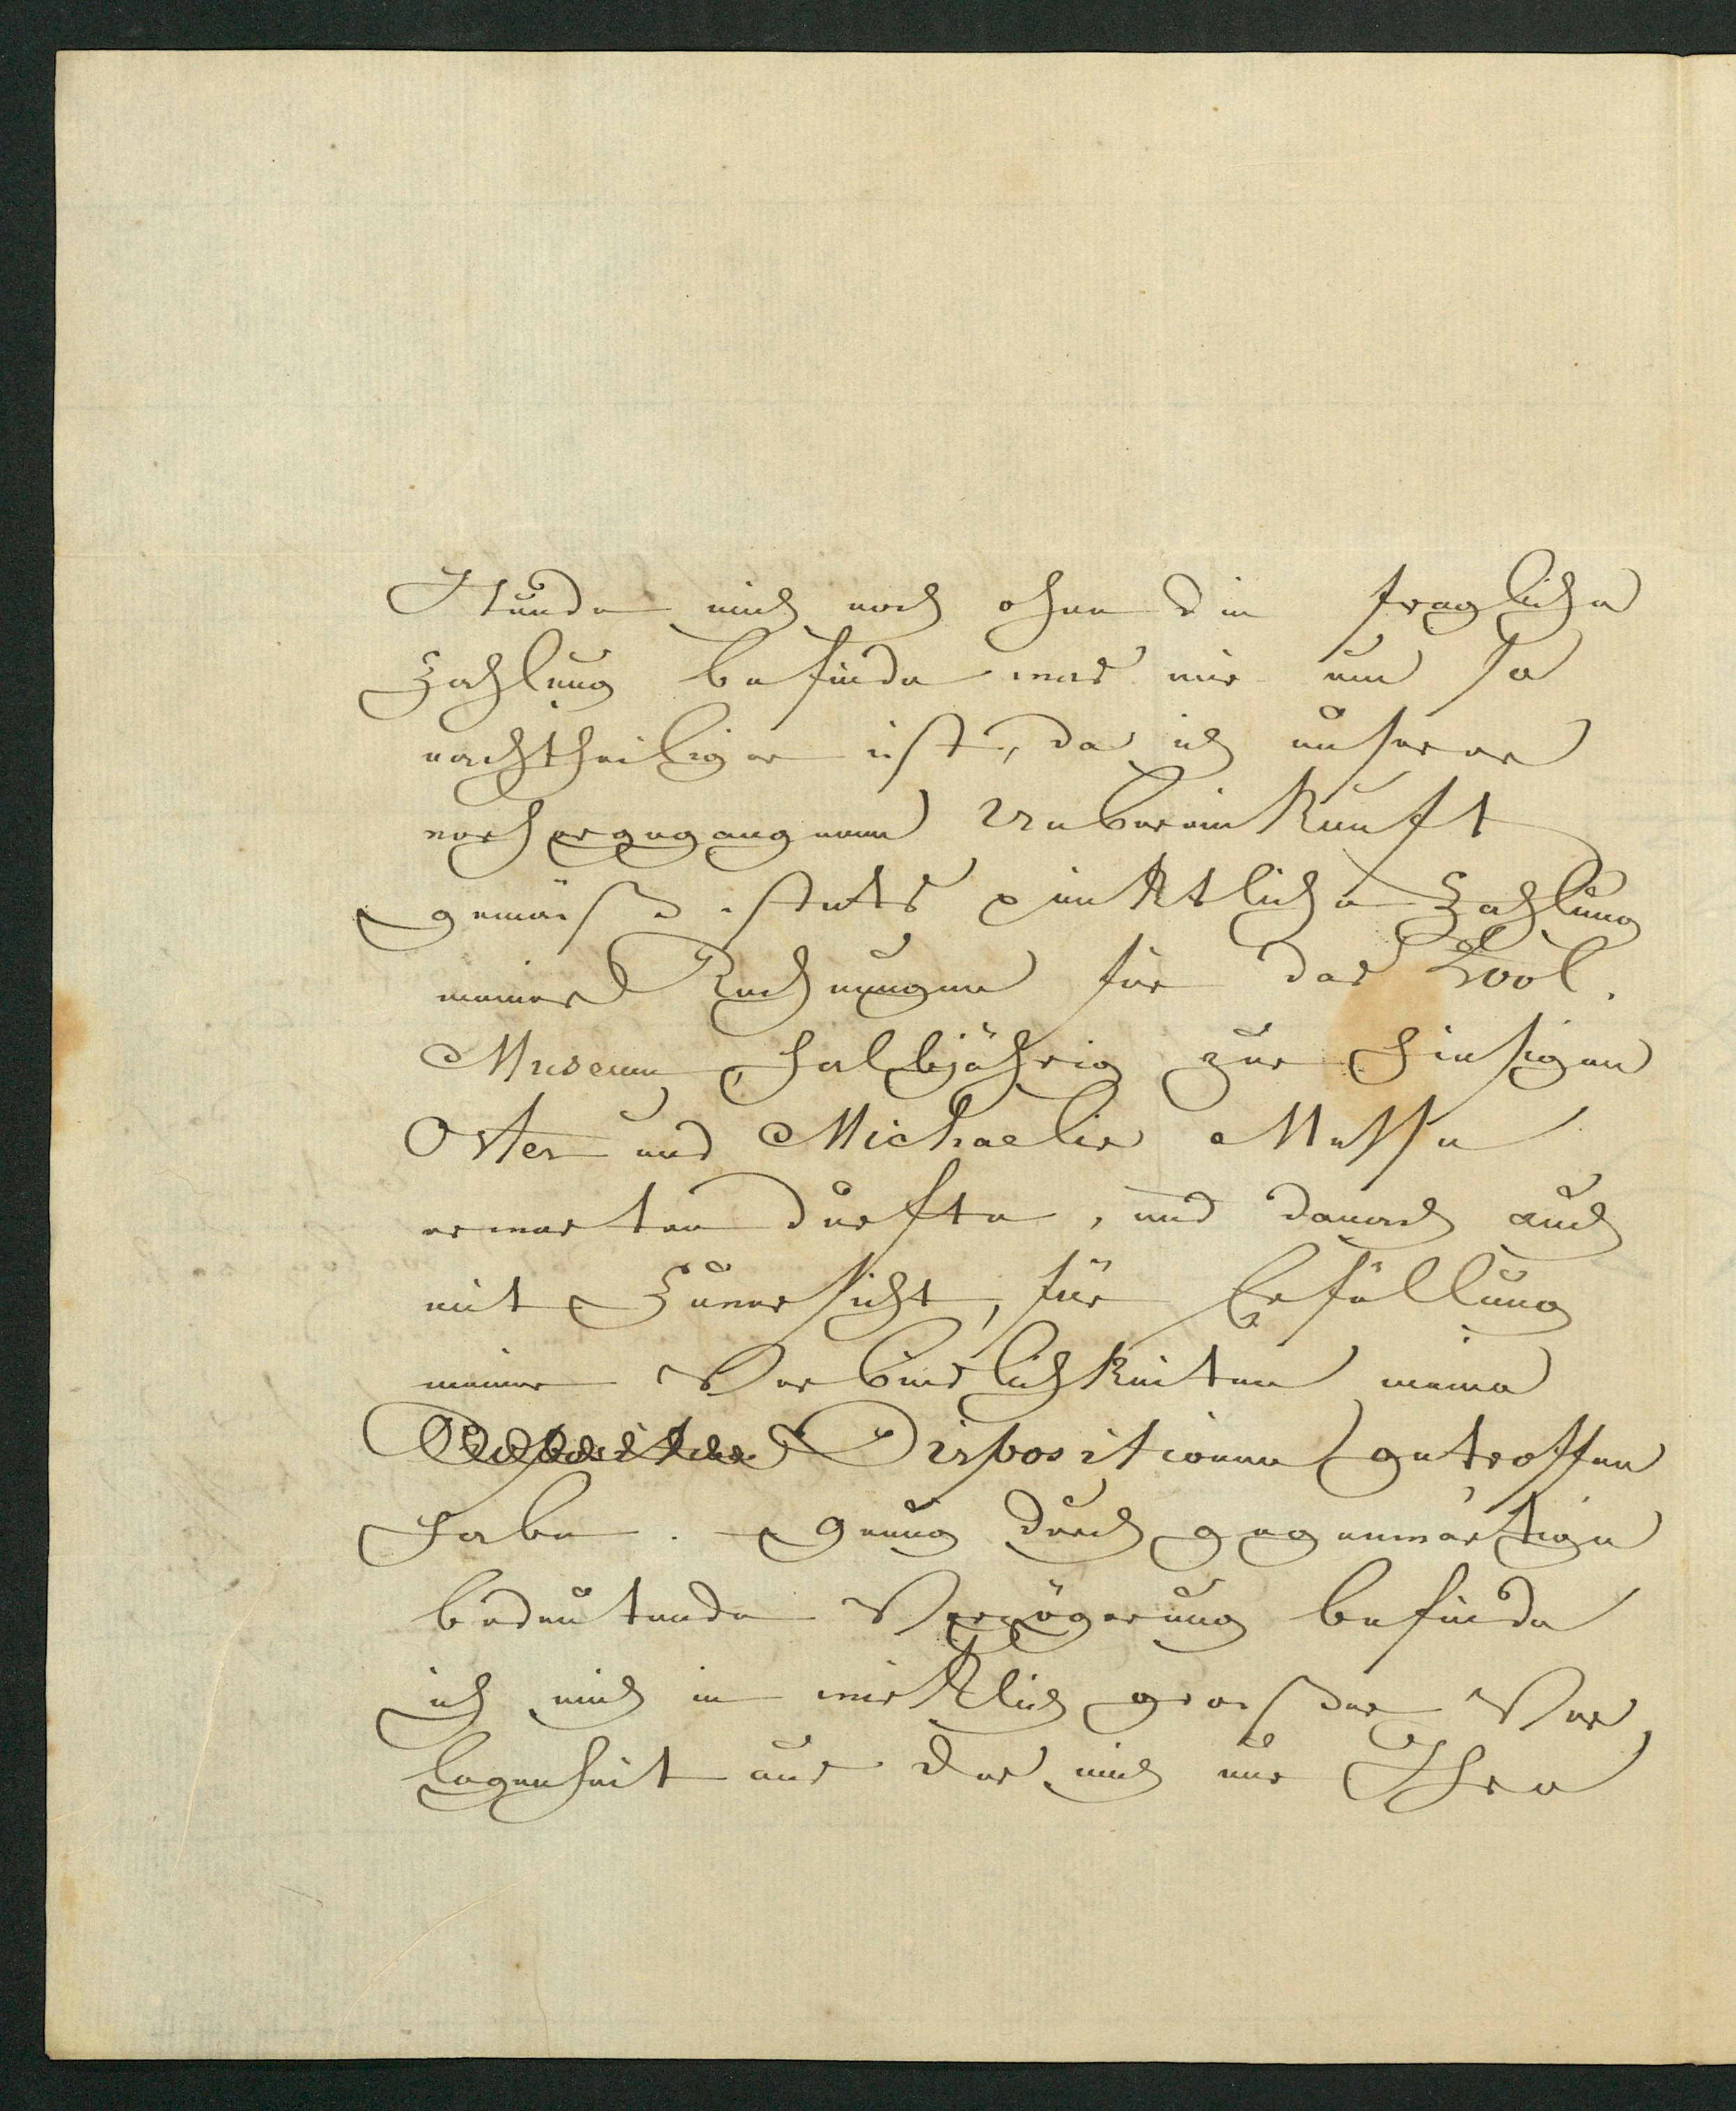 Stunde mich noch ohne die fragliche
Zahlung befinde was mir um so
nachtheiliger ist, da ich unserer
vorhergegangenen Uebereinkunft
gemäß stets pünktliche Zahlung
meiner Rechnungen für das Zool.
Museum, halbjährig zur hiesigen
Oster und Michaelis Messe
erwarten durfte, und danach auch
mit Zuversicht, für Erfüllung
meiner Verbindlichkeiten meine
Dispositionen getroffen
habe. Genug durch gegenwärtige
bedeutende Verzögerung befinde
ich mich in wirklich großer Ver
legenheit aus der mich nur Ihre